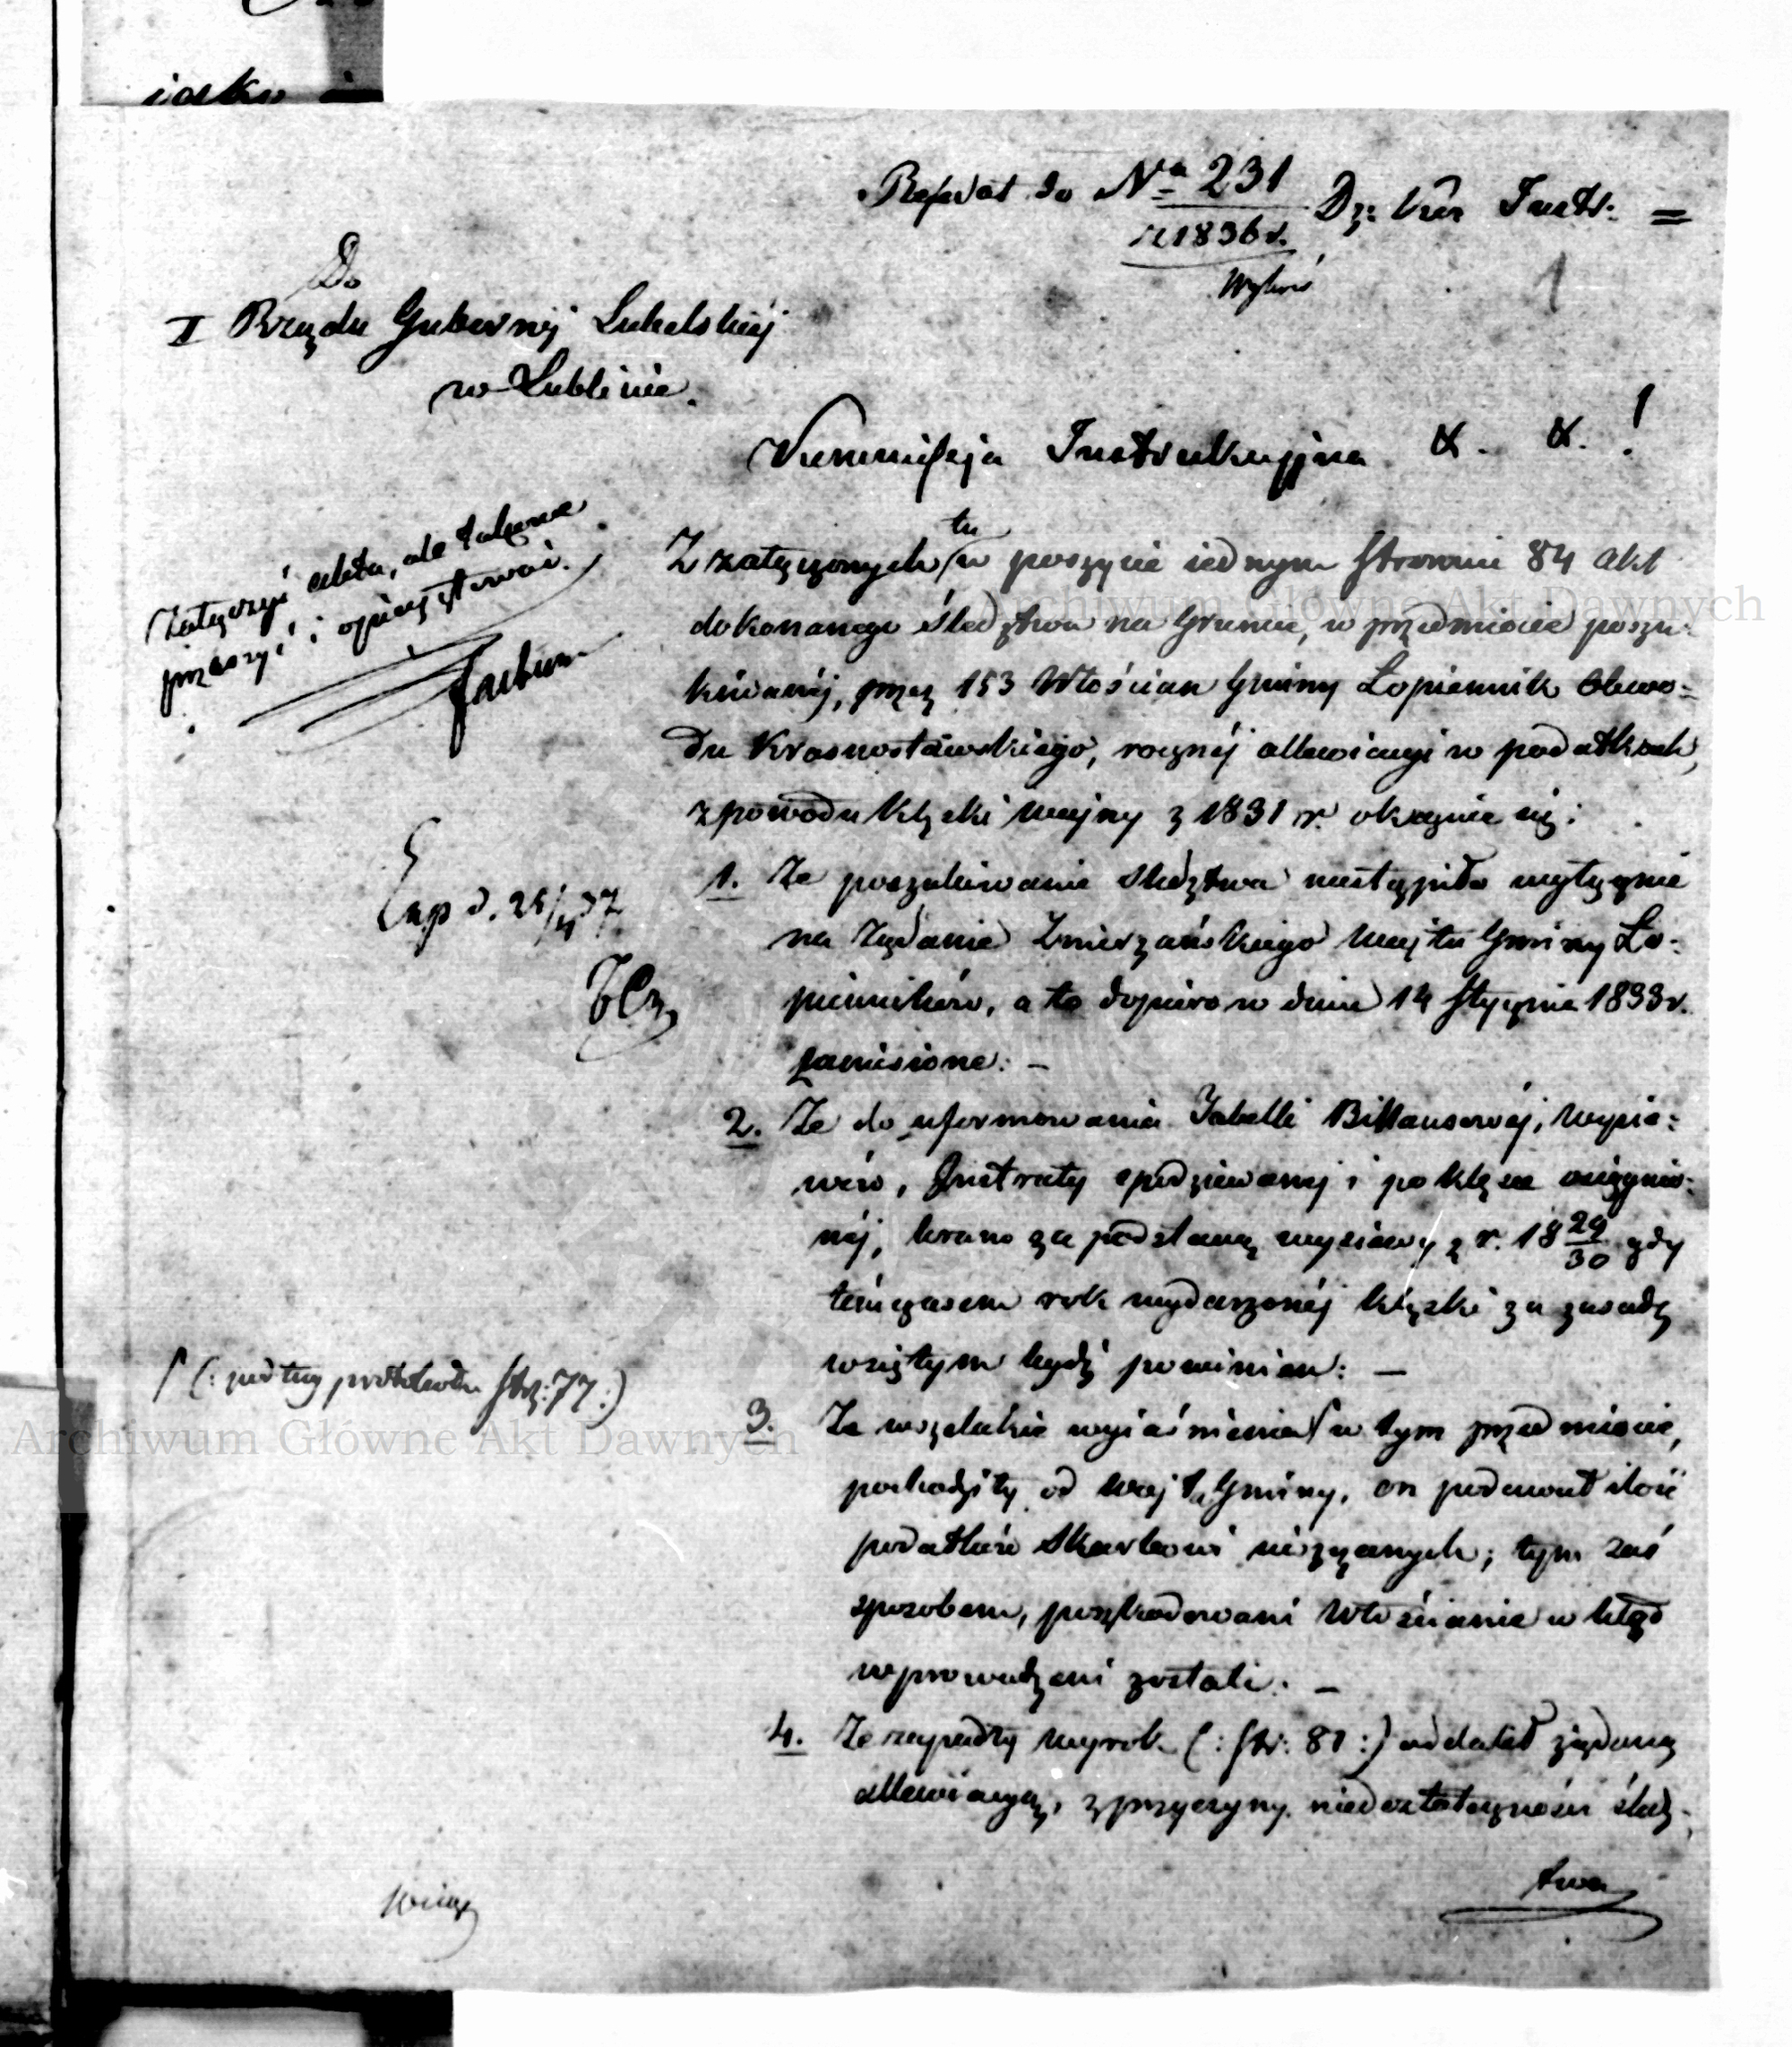 Referat do Nº 231 Dz: Kŭr Instr: =
z 1836 r.
1
Do
I Rządu Gubernij Lubelskiéj
w Lublinie.
Kommissja Instrukcyjna & . & . !
Załączyć akta, ale takowe
przeszyć i opieczętować.
Z załączonych tu w poszycie iednym stronnic 84 akt
dokonanego śledztwa na Gruncie, w przedmiocie poszu-
kiwanéj, przez 153 Włościan Gminy Łopiennik Obwo-
du Krasnostawskiego, rocznéj allewiacyi w podatkach,
z powodu klęski wojny z 1831 r. okazuie się:
Exp d. 25/4 37
1. Że poszukiwanie śledztwa nastąpiło wyłącznie
na żądanie Zmierzańskiego Wójta Gminy Ło-
pienników, a to dopiero w dniu 14 Stycznia 1833 r.
zaniesione. —
2. Że do uformowania Tabelli Billansowéj, wysie-
wów, Intraty spodziewanéj i po klęsce osiągnio-
néj, brano za podstawę wysiewy z r. 18 29/30 gdy
témczasem rok wydarzonéj klęski za zasadę
wziętym bydź powinien: —
/ (: podług protokołu str: 77 :)
3. Że wszelakie wyiaśnienia / w tym przedmiocie,
pochodziły od Wójta Gminy, on podawał ilość
podatków Skarbowi uiszczanych; tym zaś
sposobem, poszkodowani Włościanie w błąd
wprowadzeni zostali. —
4. Że zapadły wyrok (: str: 81 :) oddalił żądaną
allewiacyą, z przyczyny niedostateczności śledz-
twa
Archiwum Główne Akt Dawnych
Archiwum Główne Akt Dawnych